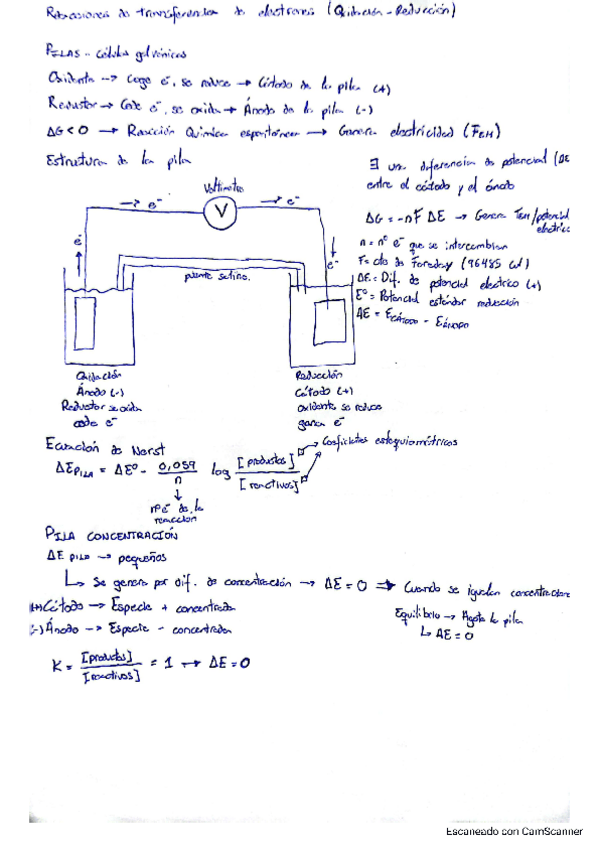 Reacciones de transferencia de electrones (Oxidación - Reducción)
PILAS - Células galvánicas
Oxidante → Coge e⁻, se reduce → Cátodo de la pila (+)
Reductor → Cede e⁻, se oxida → Ánodo de la pila (-)
ΔG < 0 → Reacción Química espontánea → Genera electricidad (FEM)
Estructura de la pila
∃ una diferencia de potencial (ΔE
entre el cátodo y el ánodo
ΔG = -nF ΔE → Genera Ten/potencial
eléctrico
n = nº e⁻ que se intercambian
F = cte de Faraday (96485 C/mol)
ΔE = Dif. de potencial eléctrico (+)
Eº = Potencial estándar reducción
ΔE = ECÁTODO - EÁNODO
Voltímetro
→ e⁻
V
→ e⁻
e⁻
e⁻
puente salino.
Oxidación
Ánodo (-)
Reductor se oxida
cede e⁻
Reducción
Cátodo (+)
oxidante se reduce
gana e⁻
Ecuación de Nerst
→ Coeficientes estequiométricos
ΔEPILA = ΔEº - 0,059/n log [productos]/[reactivos]
nº e⁻ de la
reacción
PILA CONCENTRACIÓN
ΔE PILA → pequeños
↳ Se genera por dif. de concentración → ΔE = 0 ⇒ Cuando se igualan concentraciones
(+) Cátodo → Especie + concentrada
(-) Ánodo → Especie - concentrada
Equilibrio → Agota la pila
↳ ΔE = 0
K = [productos]/[reactivos] = 1 ↔ ΔE = 0
Escaneado con CamScanner